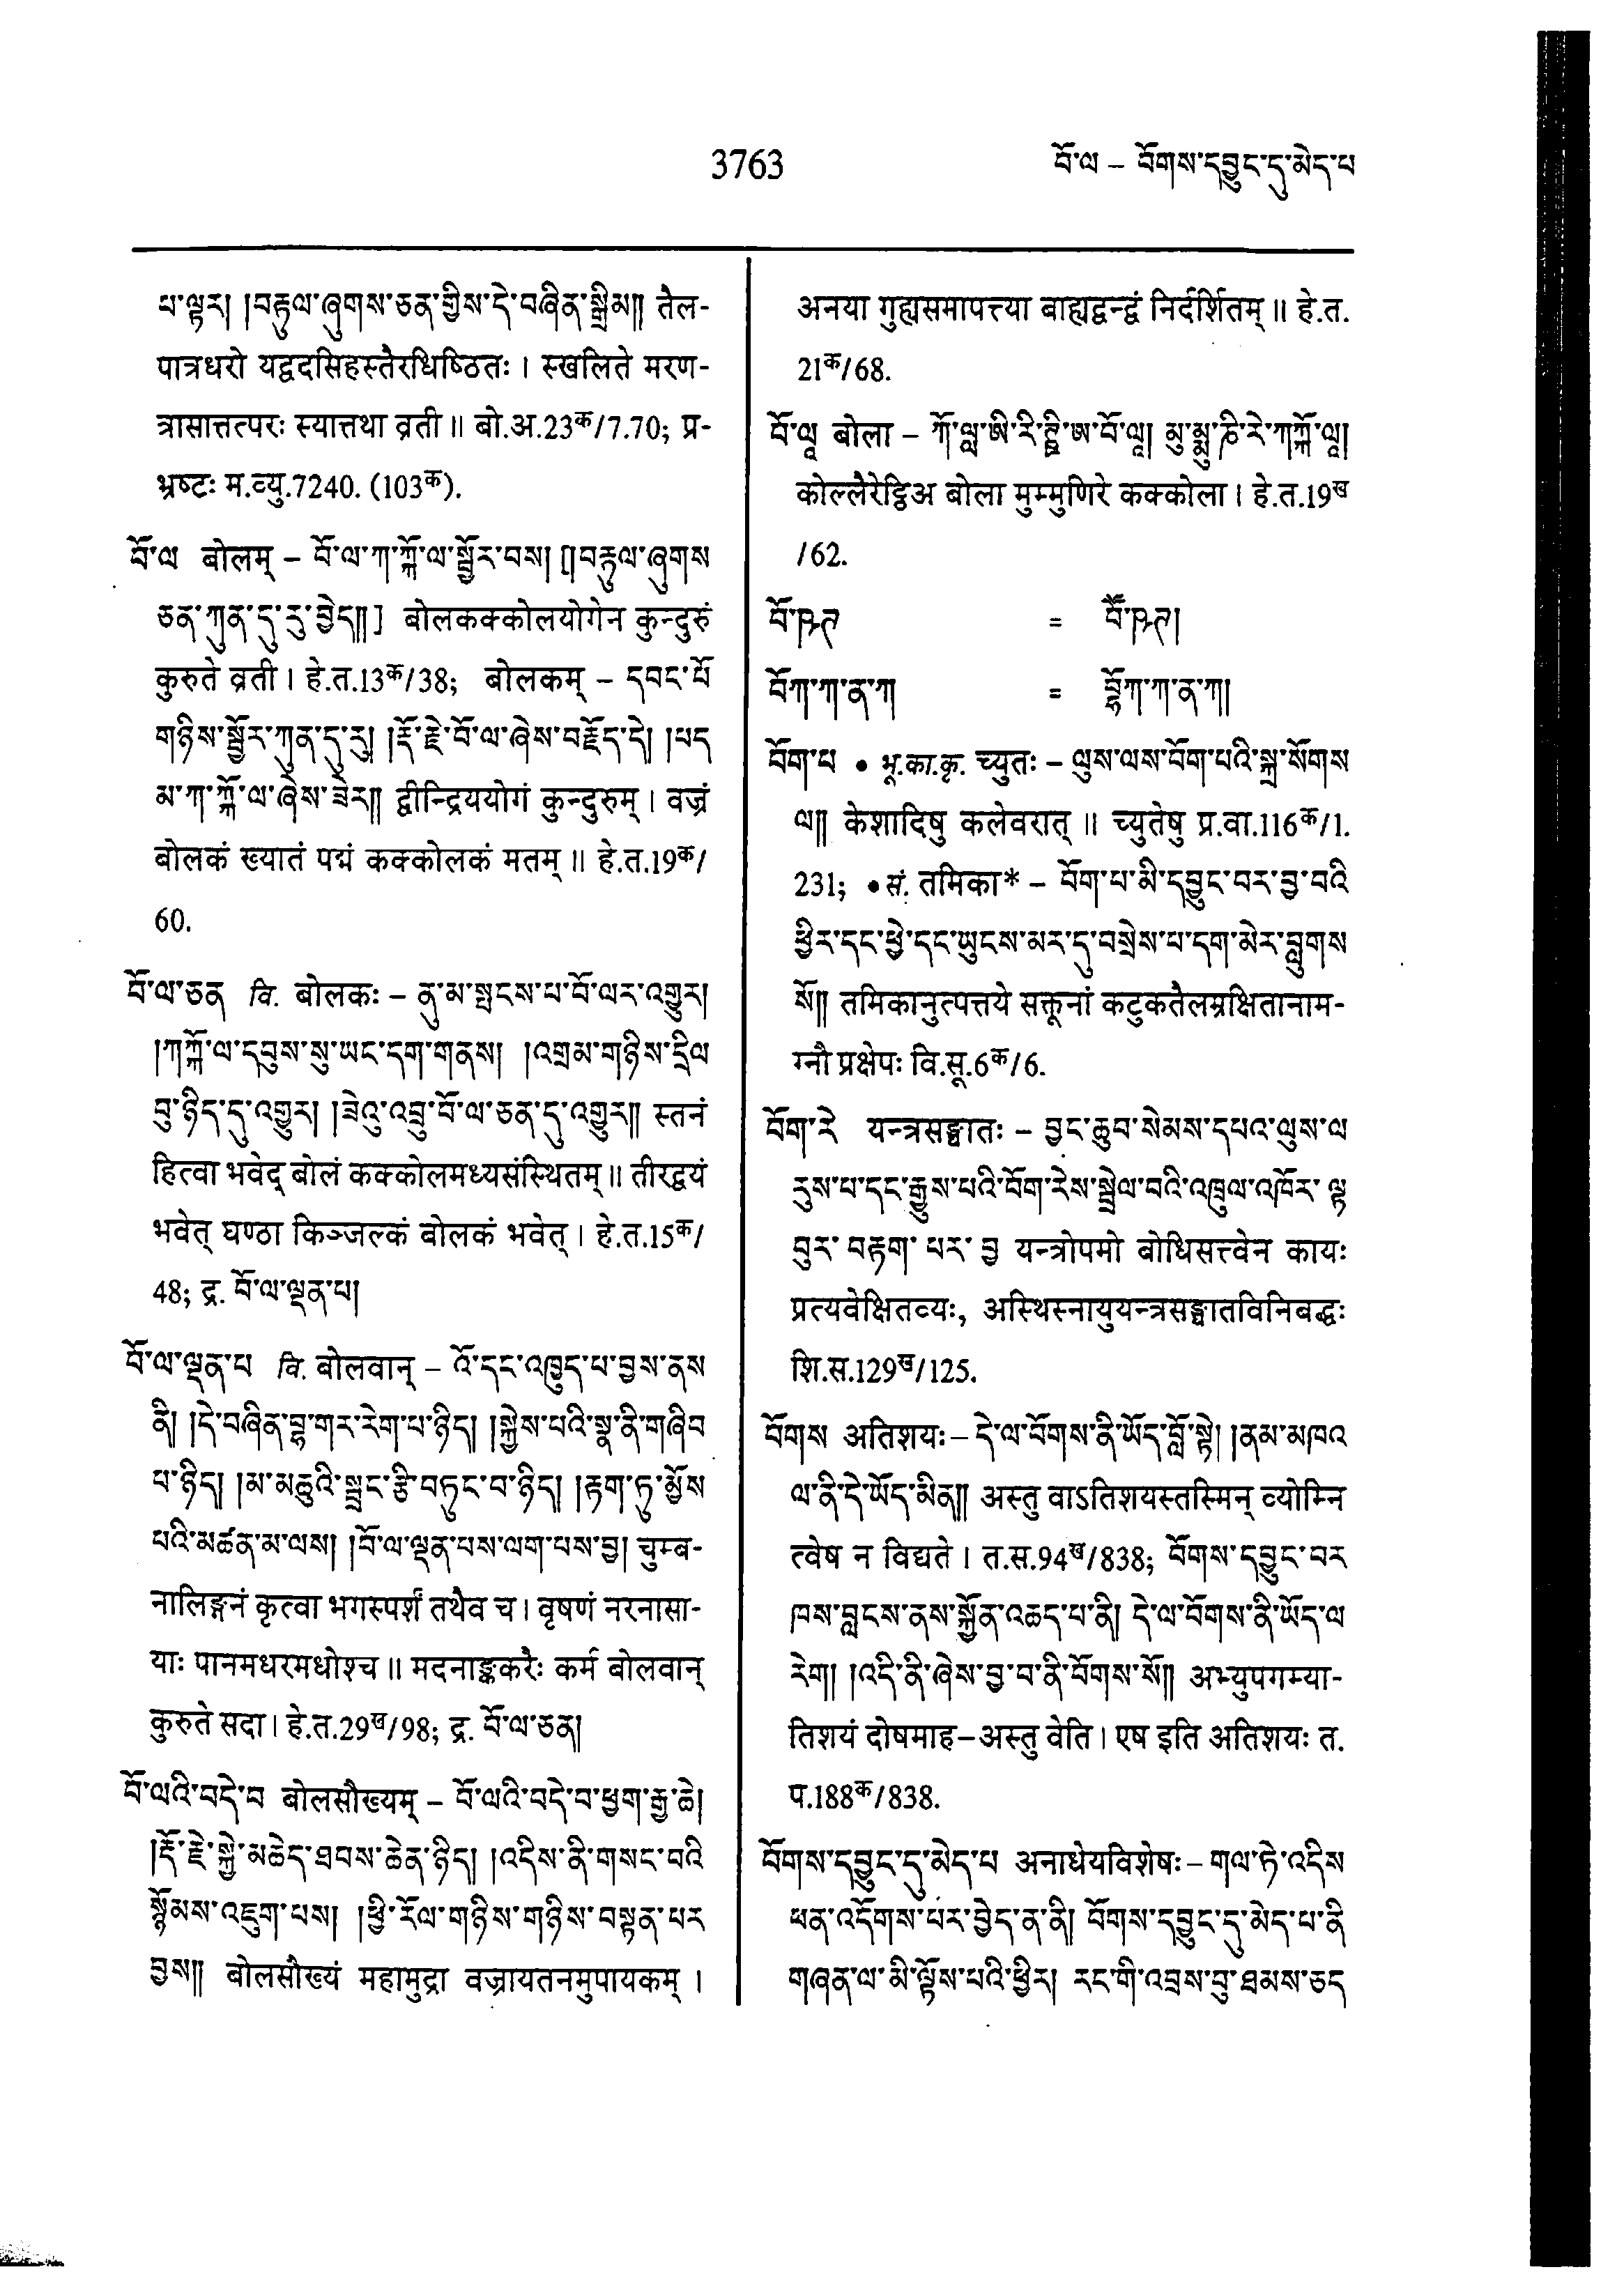 3763
བོ་ལ – བོགས་དབྱུང་དུ་མེད་པ
པ་ལྟར། །བརྟུལ་ཞུགས་ཅན་གྱིས་དེ་བཞིན་སྒྲིམ།། तैल-
पात्रधरो यद्वदसिहस्तैरधिष्ठितः । स्खलिते मरण-
त्रासात्तत्परः स्यात्तथा व्रती ॥ बो.अ.23क/7.70; प्र-
भ्रष्टः म.व्यु.7240. (103क).
བོ་ལ बोलम् – བོ་ལ་ཀ་ཀྐོ་ལ་སྦྱོར་བས། [།བརྟུལ་ཞུགས
ཅན་ཀུན་དུ་རུ་བྱེད།།] बोलकक्कोलयोगेन कुन्दुरुं
कुरुते व्रती । हे.त.13क/38; बोलकम् – དབང་པོ
གཉིས་སྦྱོར་ཀུན་དུ་རུ། །རྡོ་རྗེ་བོ་ལ་ཞེས་བརྗོད་དེ། །པད
མ་ཀ་ཀྐོ་ལ་ཞེས་ཟེར།། द्वीन्द्रिययोगं कुन्दुरुम् । वज्रं
बोलकं ख्यातं पद्मं कक्कोलकं मतम् ॥ हे.त.19क/
60.
བོ་ལ་ཅན वि. बोलकः – ནུ་མ་སྤངས་པ་བོ་ལར་འགྱུར།
།ཀཀྐོ་ལ་དབུས་སུ་ཡང་དག་གནས། །འགྲམ་གཉིས་དྲིལ
བུ་ཉིད་དུ་འགྱུར། །ཟེའུ་འབྲུ་བོ་ལ་ཅན་དུ་འགྱུར།། स्तनं
हित्वा भवेद् बोलं कक्कोलमध्यसंस्थितम् ॥ तीरद्वयं
भवेत् घण्ठा किञ्जल्कं बोलकं भवेत् । हे.त.15क/
48; द्र. བོ་ལ་ལྡན་པ།
བོ་ལ་ལྡན་པ वि. बोलवान् – འོ་དང་འཁྱུད་པ་བྱས་ནས
ནི། །དེ་བཞིན་བྷ་གར་རེག་པ་ཉིད། །སྐྱེས་པའི་སྣ་ནི་གཞིབ
པ་ཉིད། །མ་མཆུའི་སྦྲང་རྩི་བཏུང་བ་ཉིད། །རྟག་ཏུ་མྱོས
པའི་མཚན་མ་ལས། །བོ་ལ་ལྡན་པས་ལག་པས་བྱ། चुम्ब-
नालिङ्गनं कृत्वा भगस्पर्शं तथैव च । वृषणं नरनासा-
याः पानमधरमधोश्च ॥ मदनाङ्ककरैः कर्म बोलवान्
कुरुते सदा । हे.त.29ख/98; द्र. བོ་ལ་ཅན།
བོ་ལའི་བདེ་བ बोलसौख्यम् – བོ་ལའི་བདེ་བ་ཕྱག་རྒྱ་ཆེ།
།རྡོ་རྗེ་སྐྱེ་མཆེད་ཐབས་ཆེན་ཉིད། །འདིས་ནི་གསང་བའི
སྙོམས་འཇུག་པས། །ཕྱི་རོལ་གཉིས་གཉིས་བསྟན་པར
བྱས།། बोलसौख्यं महामुद्रा वज्रायतनमुपायकम् ।
अनया गुह्यसमापत्त्या बाह्यद्वन्द्वं निर्दर्शितम् ॥ हे.त.
21क/68.
བོ་ལཱ बोला – ཀོ་ལླ་ཨི་རི་ཊྛི་ཨ་བོ་ལཱ། མུ་མྨུ་ཎི་རེ་ཀཀྐོ་ལཱ།
कोल्लैरेट्ठिअ बोला मुम्मुणिरे कक्कोला । हे.त.19ख
/62.
བོ་ཊཊ = བཽ་ཊཊ།
བོཀ་ཀ་ན་ཀ = བྷོཀ་ཀ་ན་ཀ།
བོག་པ • भू.का.कृ. च्युतः – ལུས་ལས་བོག་པའི་སྐྲ་སོགས
ལ།། केशादिषु कलेवरात् ॥ च्युतेषु प्र.वा.116क/1.
231; • सं. तमिका* – བོག་པ་མི་དབྱུང་བར་བྱ་བའི
ཕྱིར་དང་ཕྱེ་དང་ཡུངས་མར་དུ་བསྲེས་པ་དག་མེར་བླུགས
སོ།། तमिकानुत्पत्तये सक्तूनां कटुकतैलम्रक्षितानाम-
ग्नौ प्रक्षेपः वि.सू.6क/6.
བོག་རེ यन्त्रसङ्घातः – བྱང་ཆུབ་སེམས་དཔའ་ལུས་ལ
རུས་པ་དང་རྒྱུས་པའི་བོག་རེས་སྦྲེལ་བའི་འཁྲུལ་འཁོར་ ལྟ
བུར་ བརྟག་ པར་ བྱ यन्त्रोपमो बोधिसत्त्वेन कायः
प्रत्यवेक्षितव्यः, अस्थिस्नायुयन्त्रसङ्घातविनिबद्धः
शि.स.129ख/125.
བོགས अतिशयः – དེ་ལ་བོགས་ནི་ཡོད་བློ་སྟེ། །ནམ་མཁའ
ལ་ནི་དེ་ཡོད་མིན།། अस्तु वाऽतिशयस्तस्मिन् व्योम्नि
त्वेष न विद्यते । त.स.94ख/838; བོགས་དབྱུང་བར
ཁས་བླངས་ནས་སྐྱོན་འཆད་པ་ནི། དེ་ལ་བོགས་ནི་ཡོད་ལ
རེག། །འདི་ནི་ཞེས་བྱ་བ་ནི་བོགས་སོ།། अभ्युपगम्या-
तिशयं दोषमाह–अस्तु वेति । एष इति अतिशयः त.
प.188क/838.
བོགས་དབྱུང་དུ་མེད་པ अनाधेयविशेषः – གལ་ཏེ་འདིས
ཕན་འདོགས་པར་བྱེད་ན་ནི། བོགས་དབྱུང་དུ་མེད་པ་ནི
གཞན་ལ་མི་ལྟོས་པའི་ཕྱིར། རང་གི་འབྲས་བུ་ཐམས་ཅད